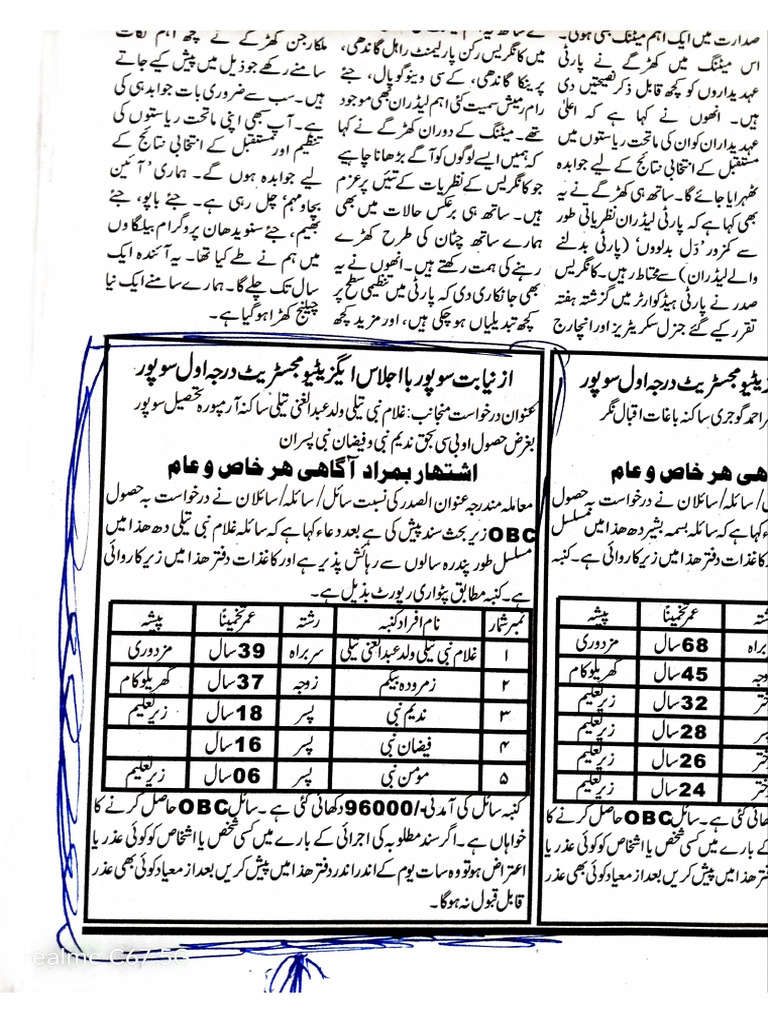 صدارت میں ایک اہم میٹنگ بھی ہوئی۔
اس میٹنگ میں کھڑگے نے پارٹی
عہدیداروں کو کچھ قابل ذکر نصیحتیں دی
ہیں۔ انھوں نے کہا ہے کہ اعلیٰ
عہدیداران کو ان کی ماتحت ریاستوں میں
مستقبل کے انتخابی نتائج کے لیے جوابدہ
ٹھہرایا جائے گا۔ ساتھ ہی کھڑگے نے یہ
بھی کہا ہے کہ پارٹی لیڈران نظریاتی طور
سے کمزور 'دَل بدلووں' (پارٹی بدلنے
والے لیڈران) سے محتاط رہیں۔ کانگریس
صدر نے پارٹی ہیڈکوارٹر میں گزشتہ ہفتہ
تقرر کیے گئے جنرل سکریٹریز اور انچارج
میں کانگریس رکن پارلیمنٹ راہل گاندھی،
پرینکا گاندھی، کے سی وینوگوپال، جئے
رام رمیش سمیت کئی اہم لیڈران بھی موجود
تھے۔ میٹنگ کے دوران کھڑگے نے کہا
کہ ہمیں ایسے لوگوں کو آگے بڑھانا چاہیے
جو کانگریس کے نظریات کے تئیں پرعزم
ہیں۔ ساتھ ہی برعکس حالات میں بھی
ہمارے ساتھ چٹان کی طرح کھڑے
رہنے کی ہمت رکھتے ہیں۔ انھوں نے یہ
بھی جانکاری دی کہ پارٹی میں تنظیمی سطح پر
کچھ تبدیلیاں ہو چکی ہیں، اور مزید کچھ
ملکارجن کھڑگے نے کچھ اہم نکات
سامنے رکھے جو ذیل میں پیش کیے جاتے
ہیں۔ سب سے ضروری بات جوابدہی کی
ہے۔ آپ بھی اپنی ماتحت ریاستوں کی
تنظیم اور مستقبل کے انتخابی نتائج کے
لیے جوابدہ ہوں گے۔ ہماری 'آئین
بچاو مہم' چل رہی ہے۔ جئے باپو، جئے
بھیم، جئے سنویدھان پروگرام بیلگاوں
میں ہم نے طے کیا تھا۔ یہ آئندہ ایک
سال تک چلے گا۔ ہمارے سامنے ایک نیا
چیلنج کھڑا ہوگیا ہے۔
زیٹیو مجسٹریٹ درجہ اول سوپور
احمد گوجری ساکنہ باغات اقبال نگر
ھی ھر خاص و عام
/سائلہ/سائلان نے درخواست بہ حصول
کہا ہے کہ سائلہ بسمہ بشیر دھ ھذا میں مسلسل
کاغذات دفتر ھذا میں زیر کاروائی ہے۔ کنبہ
عمر تخمیناً پیشہ
68 سال مزدوری
45 سال گھریلو کام
32 سال زیر تعلیم
28 سال زیر تعلیم
26 سال زیر تعلیم
24 سال زیر تعلیم
گئی ہے۔ سائل OBC حاصل کرنے کا
کے بارے میں کسی شخص یا اشخاص کو کوئی عذر یا
دفتر ھذا میں پیش کریں بعد از معیاد کوئی بھی عذر
از نیابت سوپور با اجلاس ایگزیٹیو مجسٹریٹ درجہ اول سوپور
عنوان درخواست منجانب: غلام نبی تیلی ولد عبدالغنی تیلی ساکنہ آرمپورہ تحصیل سوپور
بغرض حصول او بی سی بحق ندیم نبی و فیضان نبی پسران
اشتھار بمراد آگاھی ھر خاص و عام
معاملہ مندرجہ عنوان الصدر کی نسبت سائل/سائلہ/سائلان نے درخواست بہ حصول
OBC زیر بحث سند پیش کی ہے بعد دعاء کہا ہے کہ سائلہ غلام نبی تیلی دھ ھذا میں
مسلسل طور پندرہ سالوں سے رہائش پذیر ہے اور کاغذات دفتر ھذا میں زیر کاروائی
ہے۔ کنبہ مطابق پٹواری رپورٹ بذیل ہے۔
نمبر شمار نام افراد کنبہ رشتہ عمر تخمیناً پیشہ
۱ غلام نبی تیلی ولد عبدالغنی تیلی سربراہ 39 سال مزدوری
۲ زمرودہ بیگم زوجہ 37 سال گھریلو کام
۳ ندیم نبی پسر 18 سال زیر تعلیم
۴ فیضان نبی پسر 16 سال
۵ مومن نبی پسر 06 سال زیر تعلیم
کنبہ سائل کی آمدنی -/96000 دکھائی گئی ہے۔ سائل OBC حاصل کرنے کا
خواہاں ہے۔ اگر سند مطلوبہ کی اجرائی کے بارے میں کسی شخص یا اشخاص کو کوئی عذر یا
اعتراض ہو تو وہ سات یوم کے اندر اندر دفتر ھذا میں پیش کریں بعد از معیاد کوئی بھی عذر
قابل قبول نہ ہوگا۔
realme C67 5G